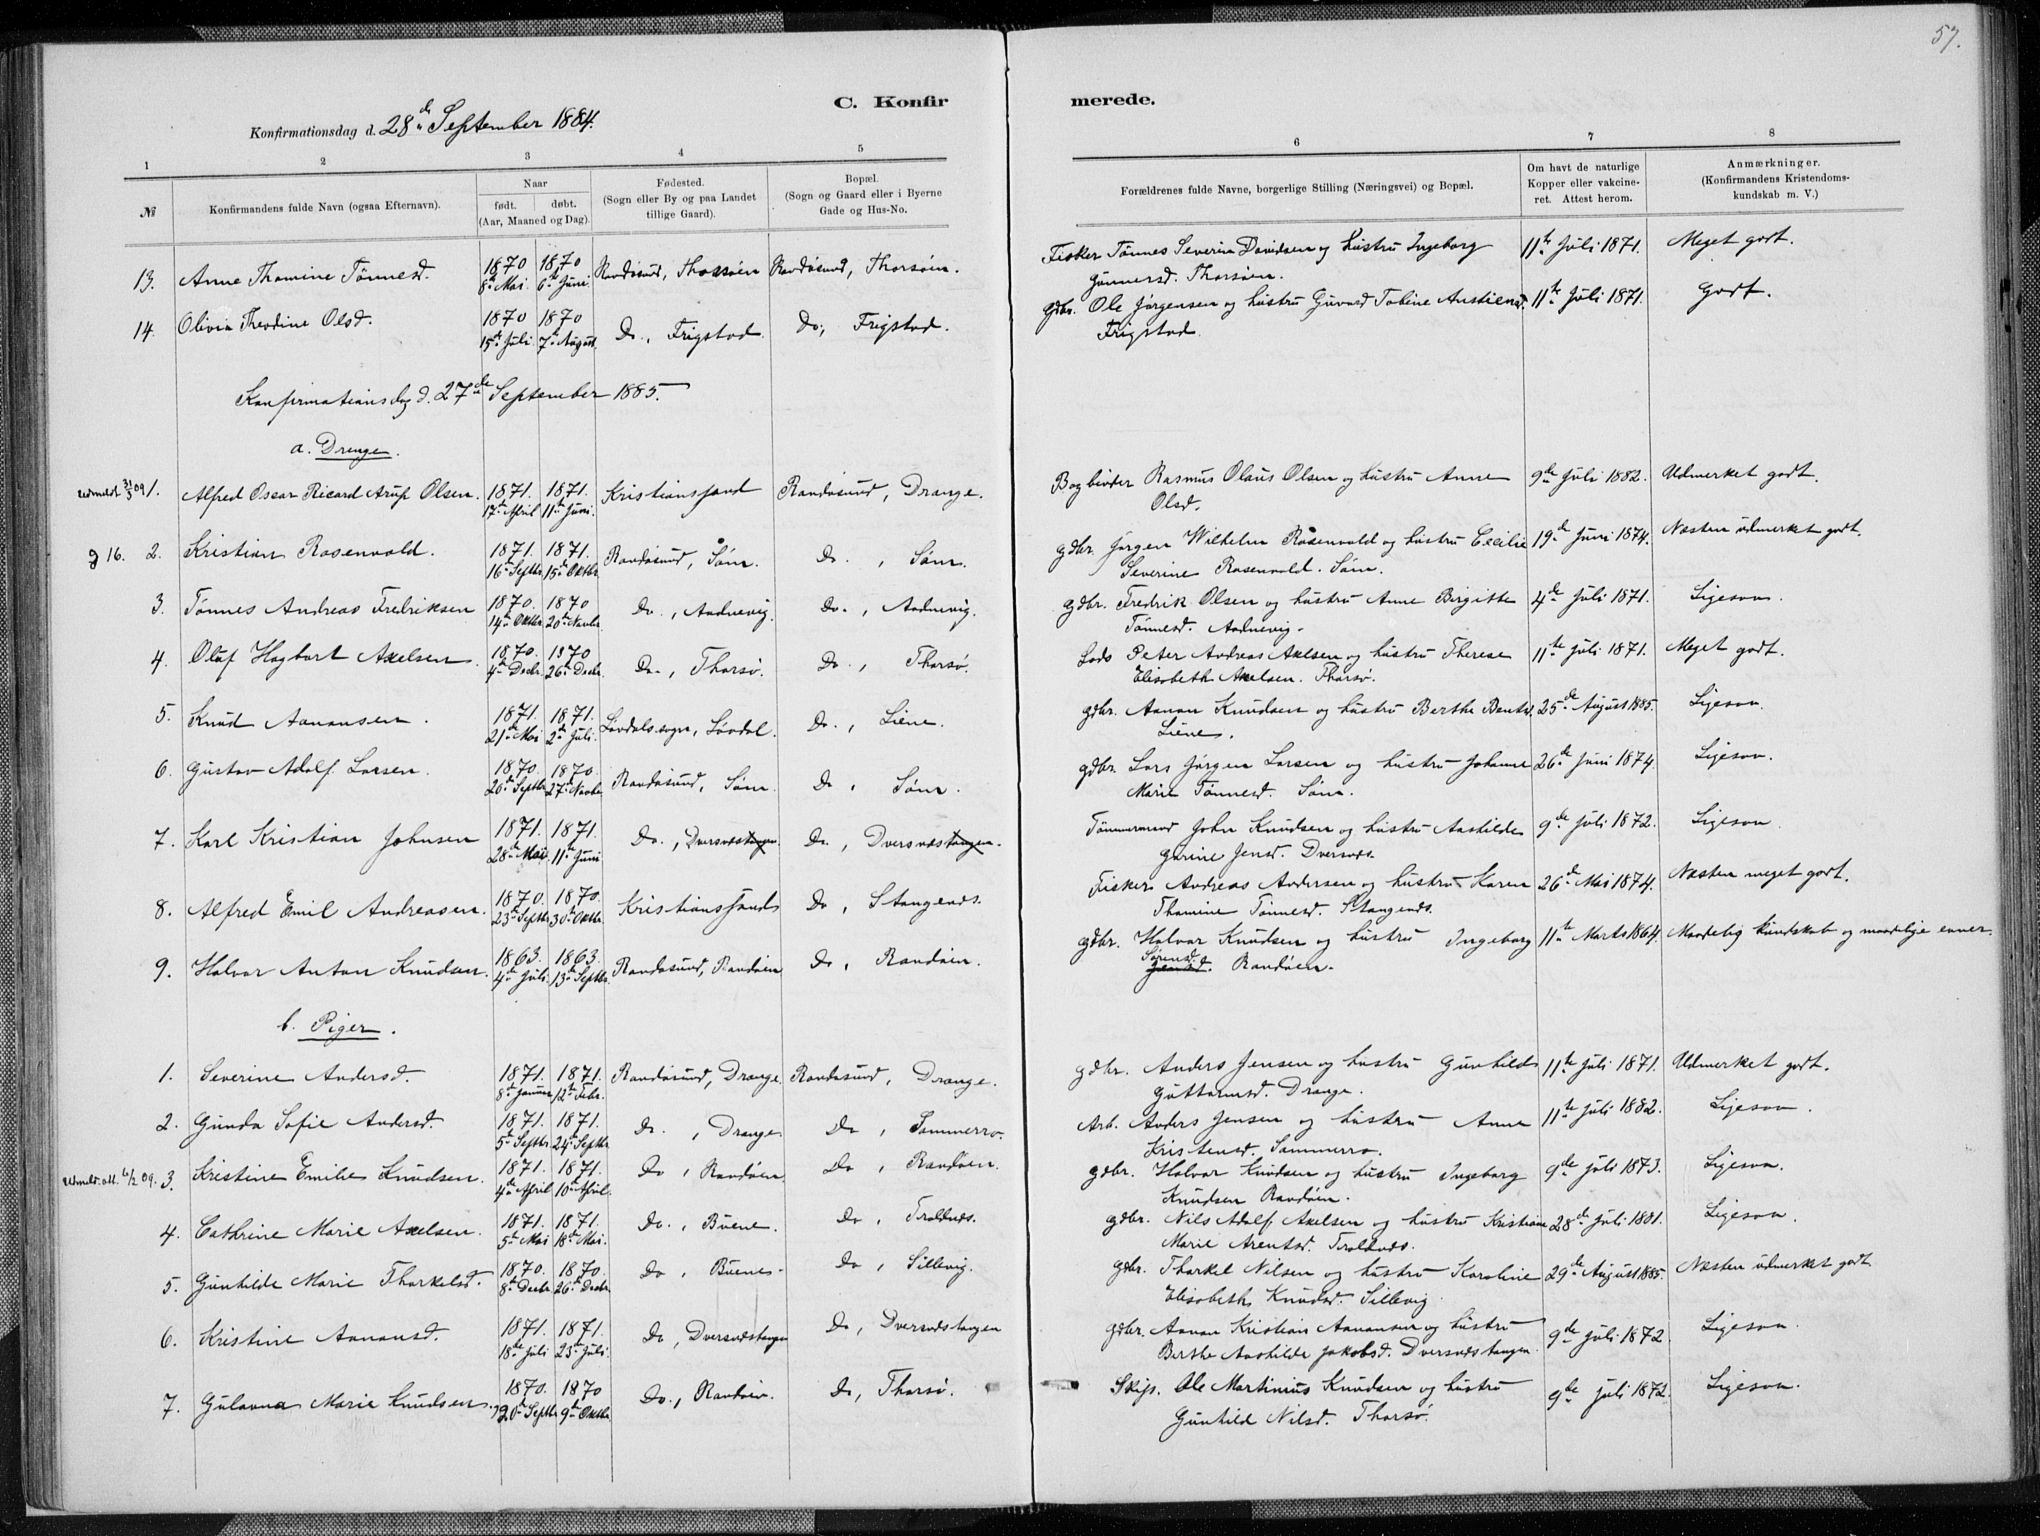 57.
C. Konfirmerede.
Konfirmationsdag d. 28de September 1884.
1 2 3 4 5 6 7 8
№ Konfirmandens fulde Navn (ogsaa Efternavn). Naar født. døbt. (Aar, Maaned og Dag). Fødested. (Sogn eller By og paa Landet tillige Gaard). Bopæl. (Sogn og Gaard eller i Byerne Gade og Hus-No. Forældrenes fulde Navne, borgerlige Stilling (Næringsvei) og Bopæl. Om havt de naturlige Kopper eller vakcineret. Attest herom. Anmærkninger. (Konfirmandens Kristendomskundskab m. V.)
13. Anne Thomine Tønnesd. 1870 8de Mai. 1870 6te Juni. Randøsund, Thorsøen Randøsund, Thorsøen. Fisker Tønnes Severin Davidsen og hustru Ingeborg Gunnersd. Thorsøen. 11te Juli 1871. Meget godt.
14. Olivia Theodine Olsd. 1870 15de Juli. 1870 7de August. Do., Frigstad. Do., Frigstad. gdbr. Ole Jørgensen og hustru Guvord Tobine Austiensd. Frigstad. 11te Juli 1871. Godt.
Konfirmationsdag d. 27de September 1885.
a. Drenge.
Udmeldt 31/3 09 1. Alfred Oscar Ricard Arup Olsen. 1871. 17de April 1871. 11te Juni. Kristianssand Randøsund, Drange. Bogbinder Rasmus Olaus Olsen og hustru Anne Olsd. 9de Juli 1882. Udmerket godt.
g 16. 2. Kristian Rosenvold. 1871. 16de Septbr. 1871. 15de Oktbr. Randøsund, Søm. Do., Søm. gdbr. Jørgen Wilhelm Rosenvold og hustru Cecilie Severine Rosenvold. Søm. 19de Juni 1874. Næsten udmerket godt.
3. Tønnes Andreas Fredriksen 1870. 14de Oktbr. 1870 20de Novbr. Do., Aadnevig. Do., Aadnevig. gdbr. Fredrik Olsen og hustru Anne Birgitte Tønnesd. Aadnevig. 4de Juli 1871. Ligesaa.
4. Olaf Hagbart Axelsen. 1870. 4de Decbr. 1870 26de Decbr. Do., Thorsø. Do., Thorsø. Lods Peter Andreas Axelsen og hustru Therese Elisabeth Axelsen. Thorsø. 11te Juli 1871. Meget godt.
5. Knud Aanansen. 1871. 21de Mai 1871. 2de Juli. Løvdals sogn, Løvdal. Do., Liene. gdbr. Aanon Knudsen og hustru Berthe Bentsd. Liene. 25de August 1885. Ligesaa.
6. Gustav Adolf Larsen. 1870. 20de Septbr. 1870. 27de Novbr. Randøsund, Søm. Do, Søm. gdbr. Lars Jørgen Larsen og hustru Johanne Marie Tønnesd. Søm. 26de Juni 1874. Ligesaa.
7. Karl Kristian Johnsen 1871. 28de Mai 1871. 11te Juni Do., Dversnæstangen. Do., Dversnæstangen. Tømmermand John Knudsen og hustru Aashilde Gurine Jensd. Dversnæs. 9de Juli 1872. Ligesaa.
8. Alfred Emil Andreasen. 1870. 23de Septbr. 1870. 30te Oktbr. Kristianssand Do, Stangenæs. Fisker Andreas Andersen og hustru Karen Thomine Tønnesd. Stangenæs. 26de Mai 1874. Næsten meget godt.
9. Halvor Anton Knudsen. 1863. 4de Juli. 1863. 13de Septbr. Randøsund, Randøen Do, Randøen. gdbr. Halvor Knudsen og hustru Ingeborg Sørensd. Jensd. Randøen. 11te Marts 1864. Maadelig kundskab og maadelige evner.
b. Piger.
1. Severine Andersd. 1871. 8de Januar 1871. 12te Febr. Randøsund, Drange. Randøsund, Drange. gdbr. Anders Jensen og hustru Gunhild Guttormsd. Drange. 11te Juli 1871. Udmerket godt.
2. Gunda Sofie Andersd. 1871. 5te Septbr. 1871. 24de Septbr. Do., Drange. Do, Sommerro. Arb. Anders Jensen og hustru Anne Kristensd. Sommerro. 11te Juli 1882. Ligesaa.
Udmeld. att. 6/2 09. 3. Kristine Emilie Knudsen. 1871. 4de April 1871. 10de April. Do, Randøen. Do, Randøen. gdbr. Halvor Knudsen og hustru Ingeborg Knudsen Randøen. 9de Juli 1873. Ligesaa.
4. Cathrine Marie Axelsen. 1871. 5te Mai 1871. 18de Mai. Do., Buene. Do, Troldnæs. gdbr. Nils Adolf Axelsen og hustru Kristiane Marie Arentsd. Troldnæs. 28de Juli 1881. Ligesaa.
5. Gunhilde Marie Thorkelsd. 1870. 8de Decbr. 1870. 26de Decbr. Do, Buenes. Do, Sillevig. gdbr. Thorkel Nilsen og hustru Karoline Elisabeth Knudsd. Sillevig. 29de August 1885. Næsten udmerket godt.
6. Kristine Aanansd. 1871. 18de Juli 1871. 23de Juli. Do, Dversnæstangen Do, Dversnæstangen gdbr. Aanan Kristian Aanansen og hustru Berthe Aashilde Jakobsd. Dversnæstangen. 9de Juli 1872. Ligesaa.
7. Gulovna Marie Knudsen. 1870. 20de Septbr. 1870 9de Oktbr. Do., Randøen. Do, Thorsø. Skips. Ole Martinius Knudsen og hustru Gunhild Nilsd. Thorsø. 9de Juli 1872. Ligesaa.